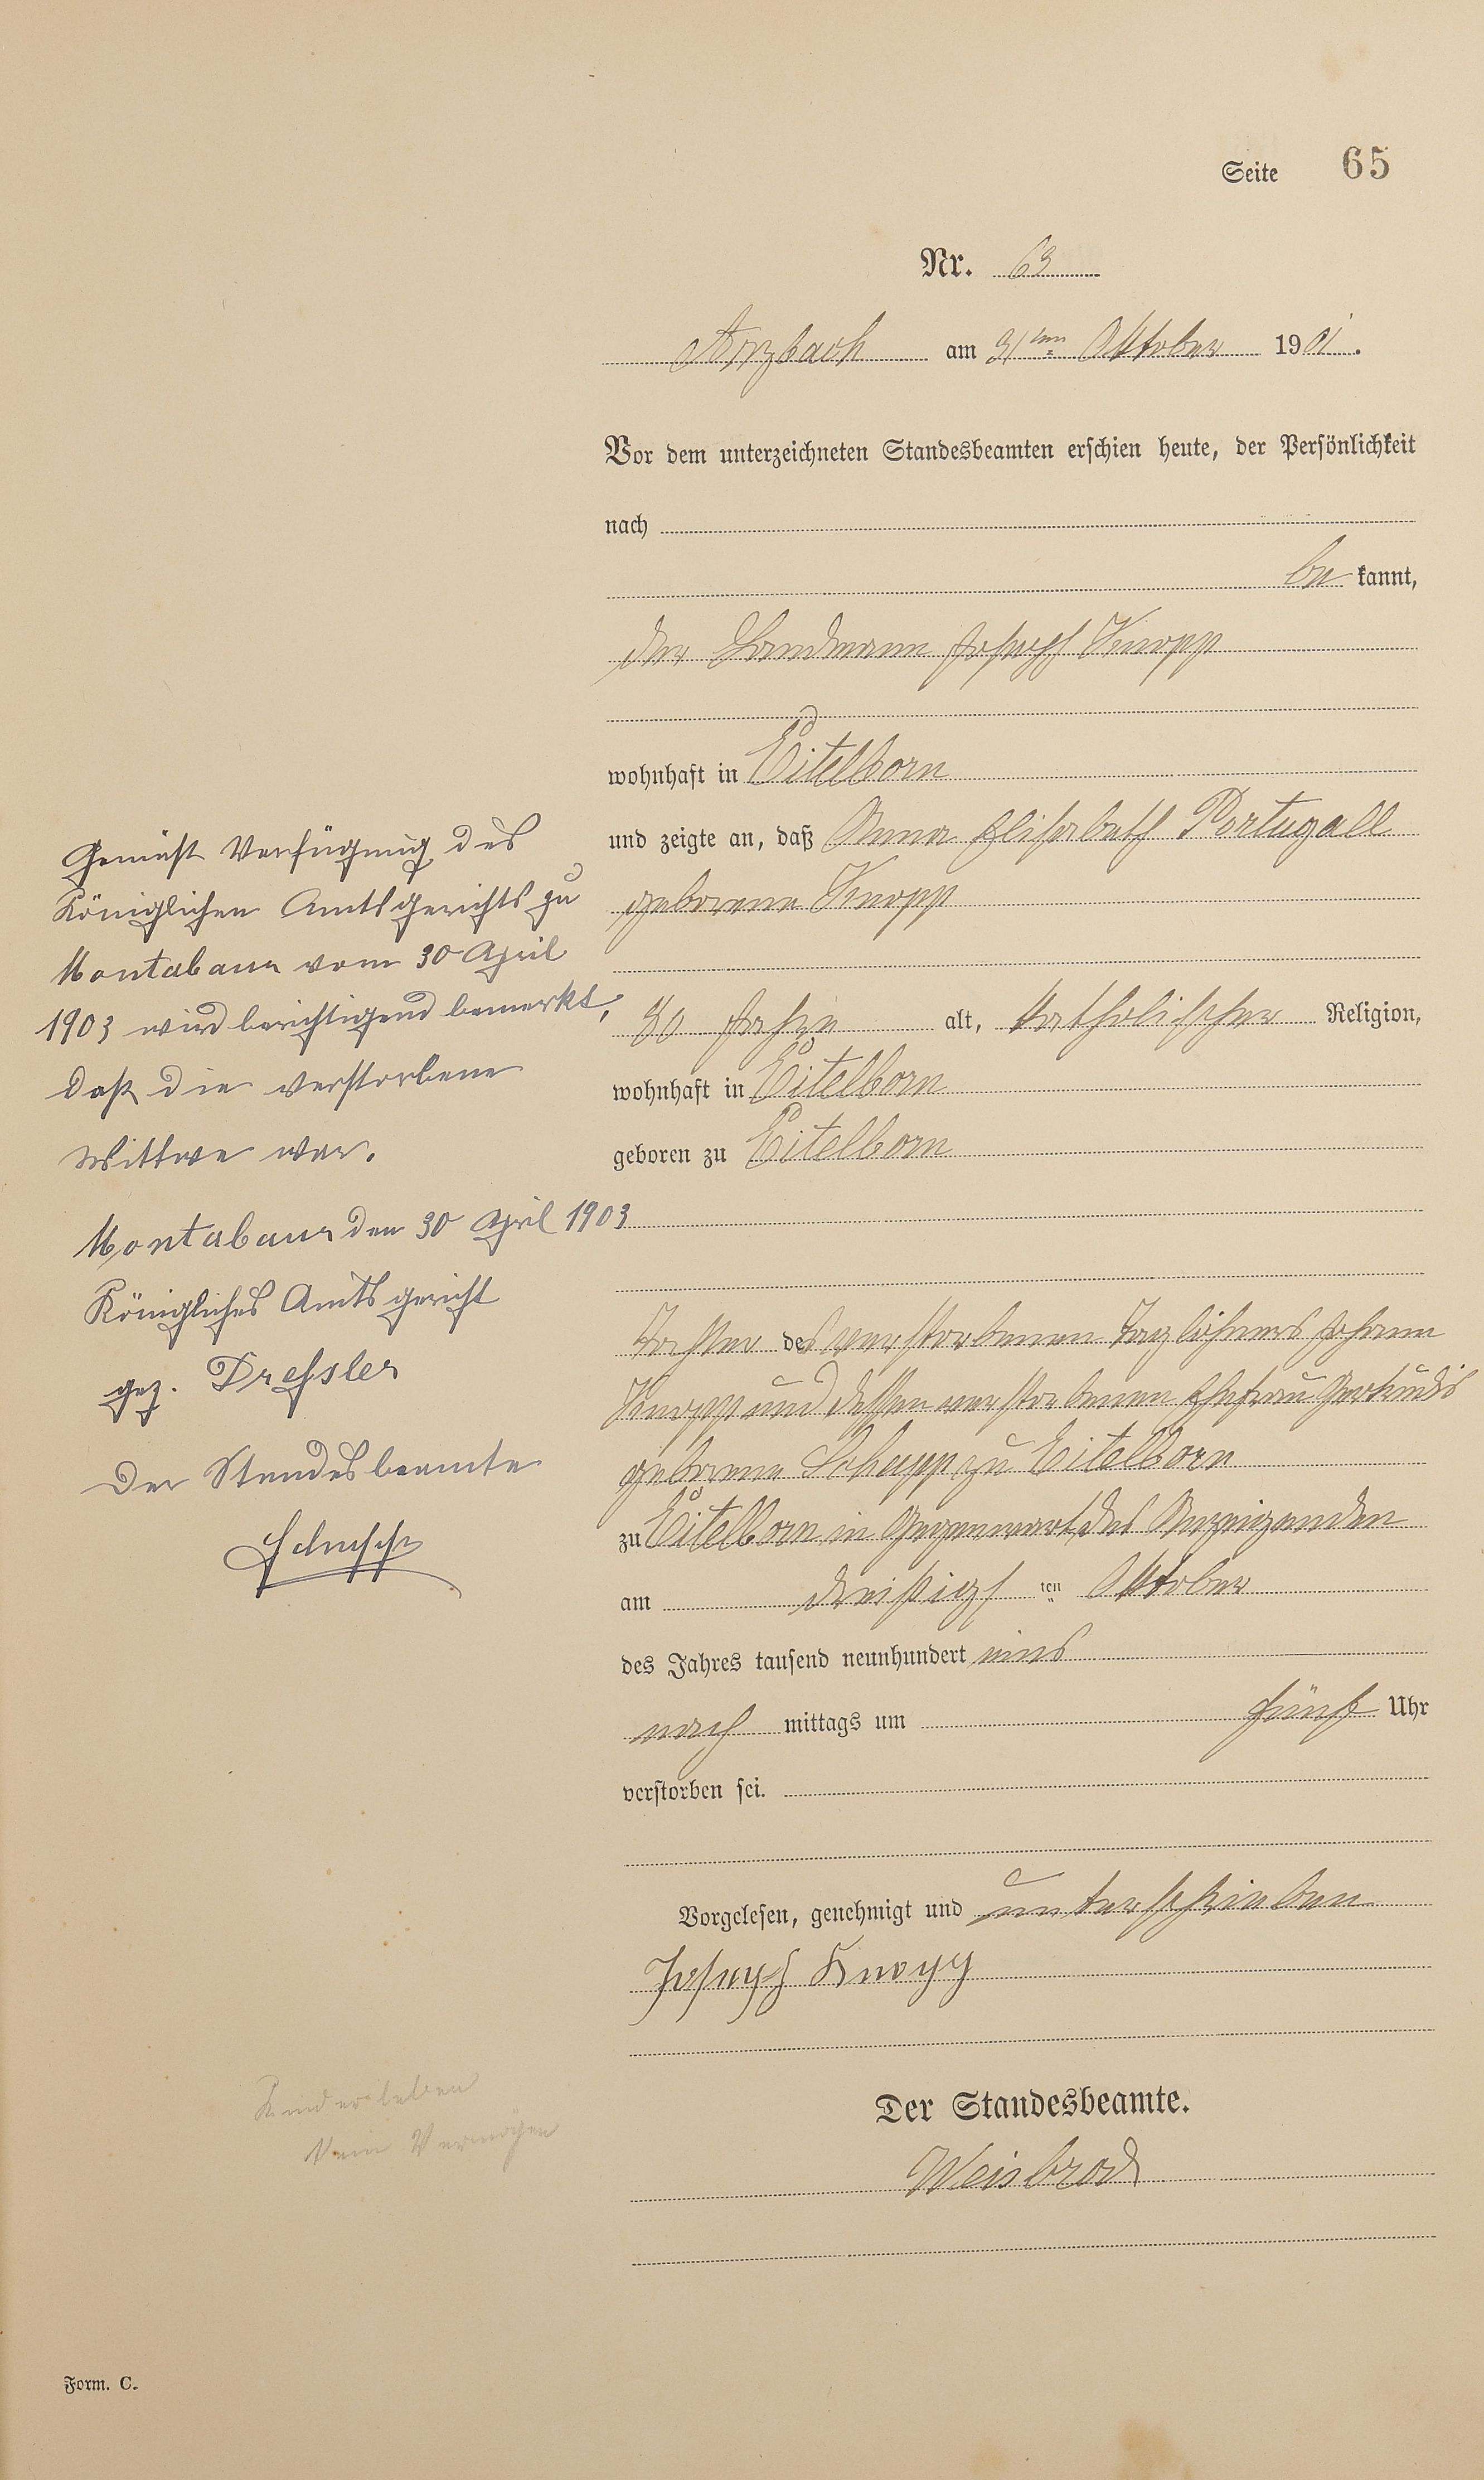 Seite 65
Nr. 63
Arzbach am 31ten Oktober 1901.
Vor dem unterzeichneten Standesbeamten erschien heute, der Persönlichkeit
nach
be kannt,
der Landmann Joseph Knopp
wohnhaft in Eitelborn
und zeigte an, daß Anna Elisabeth Portugall
geborene Knopp
80 Jahre alt, katholischer Religion,
wohnhaft in Eitelborn
geboren zu Eitelborn
Tochter des verstorbenen Taglöhners Johann
Knopp und dessen verstorbenen Ehefrau Gertrudis
geborene Schupp zu Eitelborn
zu Eitelborn in Gegenwart des Anzeigenden
am dreißigs ten Oktober
des Jahres tausend neunhundert eins
nach mittags um fünf Uhr
verstorben sei.
Vorgelesen, genehmigt und unterschrieben
Joseph Knopp
Der Standesbeamte.
Weisbrod
Gemäß Verfügung des
Königlichen Amtsgerichts zu
Montabaur vom 30 April
1903 wird berichtigend bemerkt,
daß die verstorbene
Wittwe war.
Montabaur den 30 April 1903
Königliches Amtsgericht
gez. Dressler
Der Standesbeamte
Kinder leben
Kein Vermögen
Form. C.